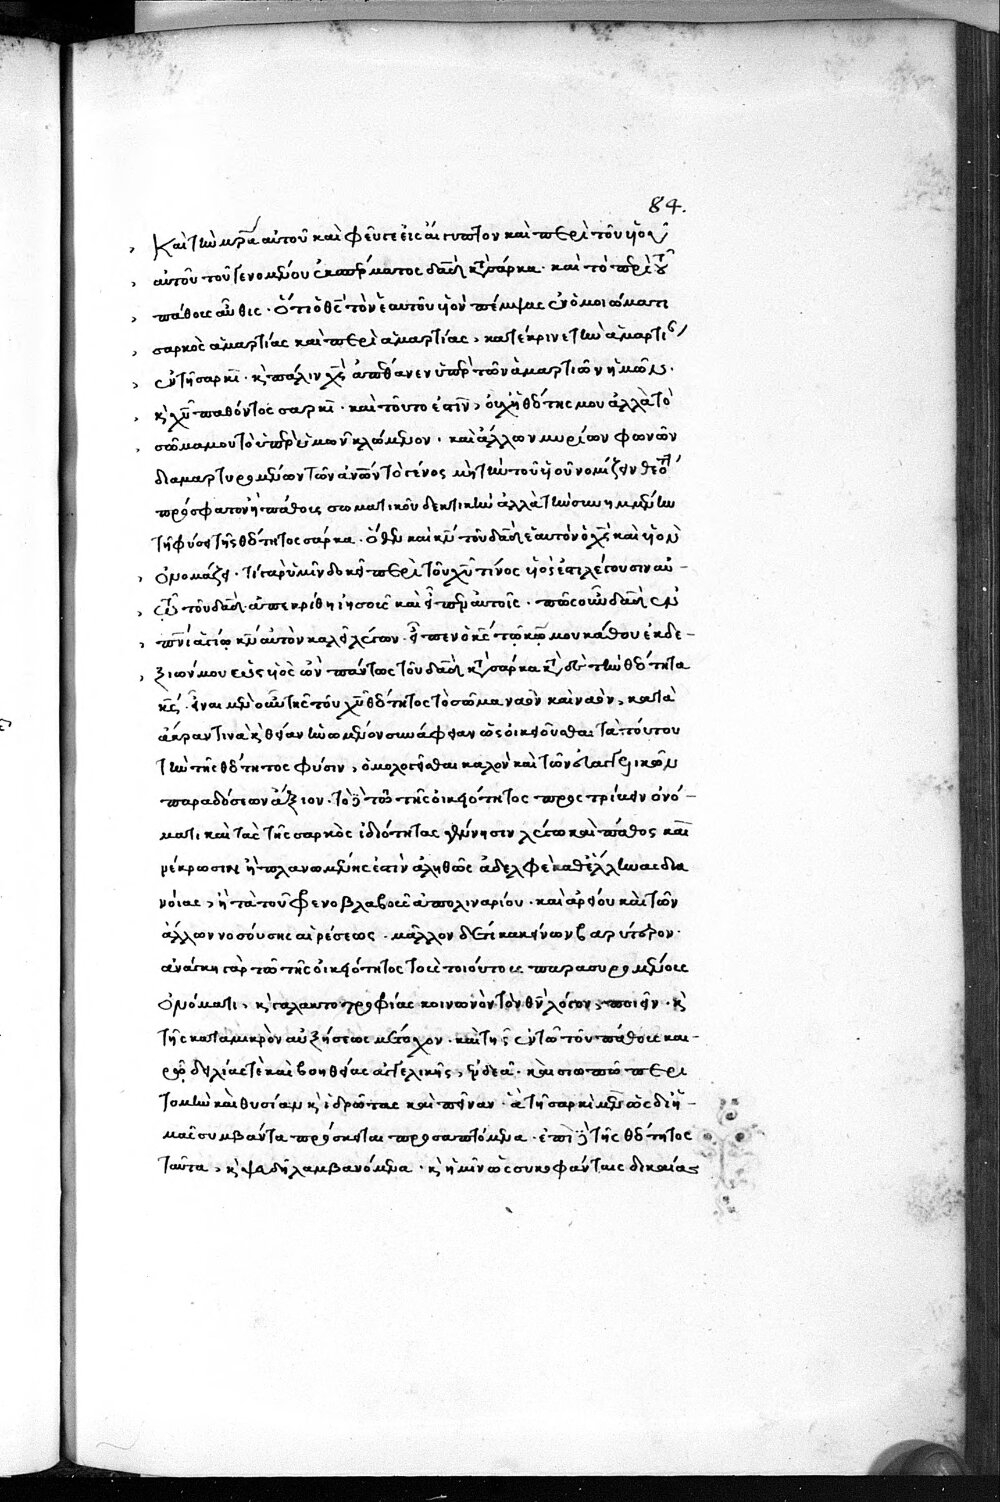 84.
Καὶ τὴν μρ̅α αὐτοῦ καὶ φεῦγε εἰς αἴγυπτον καὶ περὶ τοῦ υἱοῦ
αὐτοῦ τοῦ γενομένου ἐκ σπέρματος δα̅δ κατὰ σάρκα· καὶ τὸ περὶ τοῦ
πάθους αὖθις· ὅτι ὁ θς̅ τὸν ἑαυτοῦ υἱὸν πέμψας ἐν ὁμοιώματι
σαρκὸς ἁμαρτίας καὶ περὶ ἁμαρτίας, κατέκρινε τὴν ἁμαρτίαν
ἐν τῇ σαρκί· κ̀ πάλιν χς̅ ἀπέθανεν ὑπὲρ τῶν ἁμαρτιῶν ἡμῶν·
κ̀ χυ̅ παθόντος σαρκί· καὶ τοῦτο ἐστὶν, οὐχ ἡ θεότης μου ἀλλὰ τὸ
σῶμα μου τὸ ὑπὲρ ὑμῶν κλώμενον· καὶ ἄλλων μυρίων φωνῶν
διαμαρτυρομένων τῶν ἀνω̅ν τὸ γένος μὴ τὴν τοῦ υἱοῦ νομίζειν θεότητα
πρόσφατον ἢ πάθους σωματικοῦ δεκτικὴν ἀλλὰ τὴν συνημμένην
τῇ φύσει τῆς θεότητος σάρκα· ὅθεν καὶ κν̅ τοῦ δα̅δ ἑαυτὸν ὁ χς̅ καὶ υἱὸν
ὀνομάζει· τί γὰρ ὑμῖν δοκεῖ περὶ τοῦ χυ̅ τίνος υἱός ἐστι λέγουσιν αὐ-
τῷ τοῦ δα̅δ· ἀπεκρίθη ἰησοῦς καὶ εἶπεν αὐτοῖς· πῶς οὖν δα̅δ ἐν
πνι̅ ἁγίῳ κν̅ αὐτὸν καλεῖ λέγων· εἶπεν ὁ κς̅ τῷ κῳ̅ μου κάθου ἐκ δε-
ξιῶν μου ὡς υἱὸς ὢν πάντως τοῦ δα̅δ κατὰ σάρκα κατὰ δὲ τὴν θεότητα
κς̅· εἶναι μὲν οὖν τῆς τοῦ χυ̅ θεότητος τὸ σῶμα ναὸν καὶ ναὸν, κατὰ
ἄκραν τινὰ κ̀ θείαν ἡνωμένον συνάφειαν ὡς οἰκειοῦσθαι τὰ τούτου
τὴν τῆς θεότητος φύσιν, ὁμολογεῖσθαι καλὸν καὶ τῶν εὐαγγελικῶν
παραδόσεων ἄξιον· τὸ δὲ τῷ τῆς οἰκειότητος προστρίβειν ὀνό-
ματι καὶ τὰς τῆς σαρκὸς ἰδιότητας γέννησιν λέγω καὶ πάθος καὶ
νέκρωσιν ἢ πλανωμένης ἐστὶν ἀληθῶς ἀδελφὲ καθ' ἕλληνας δια
νοίας, ἢ τὰ τοῦ φρενοβλαβοῦς ἀπολιναρίου· καὶ ἀρείου καὶ τῶν
ἄλλων νοσούσης αἱρέσεως· μᾶλλον δέ τι κακείνων βαρύτερον·
ἀνάγκη γὰρ τῷ τῆς οἰκειότητος τοὺς τοιούτους παρασυρομένους
ὀνόματι, κ̀ γαλακτοτροφίας κοινωνὸν τὸν θν̅ λόγον, ποιεῖν· κ̀
τῆς κατὰ μικρὸν αὐξήσεως μέτοχον· καὶ τῆς ἐν τῷ τοῦ πάθους και-
ρῷ δειλίας τὲ καὶ βοηθείας ἀγγελικῆς, ἐνδεᾶ· καὶ σιωπῶ περι
τομὴν καὶ θυσίαν κ̀ ἱδρῶτας καὶ πεῖναν· ἃ τῇ σαρκὶ μὲν ὡς δι' ἡ-
μᾶς συμβάντα πρόσκειται προσαπτόμενα· ἐπὶ δὲ τῆς θεότητος
ταῦτα, κ̀ ψευδῆ λαμβανόμενα· κ̀ ἡμῖν ὡς συκοφάνταις δικαίας